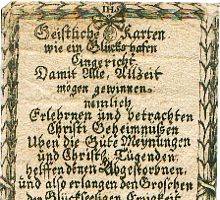 IHS
Geistliche Karten
wie ein Glücks hafen
Eingericht.
Damit Alle, Allzeit
mögen gewinnen.
nemlich
Erlehrnen und betrachten
Christi Geheimnußen
Uben die Gute Meynungen
und Christl. Tugenden,
helffen denen Abgestorbnen,
und also erlangen den Groschen
der Glückseeligen Ewigkeit